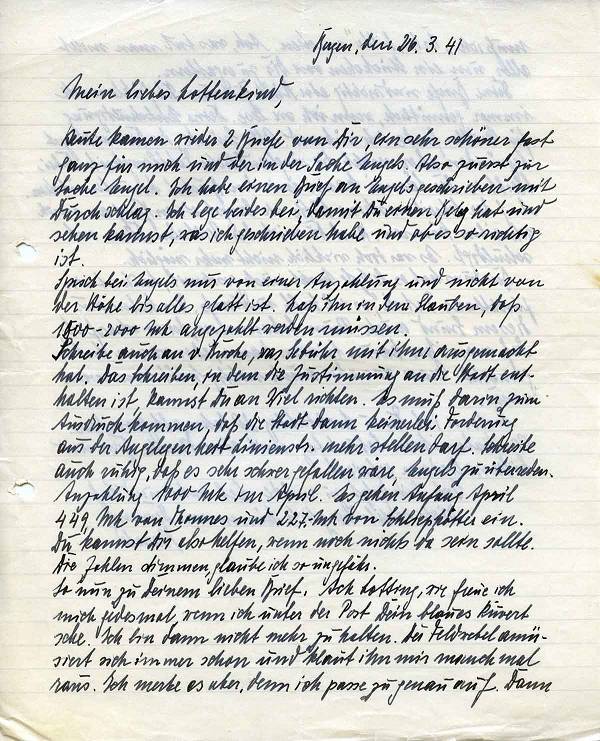 Hagen, den 26. 3. 41
Mein liebes Lottenkind,
Heute kamen wieder 2 Briefe von Dir, ein sehr schöner fast
ganz für mich und der in der Sache Engels. Also zuerst zur
Sache Engel. Ich habe einen Brief an Engels geschrieben mit
Durchschlag. Ich lege beides bei, damit Du einen Beleg hat und
sehen kannst, was ich geschrieben habe und ob es so richtig
ist.
Sprich bei Engels nur von einer Anzahlung und nicht von
der Höhe bis alles glatt ist. Laß ihn in dem Glauben, daß
1800-2000 Mk angezahlt werden müssen.
Schreibe auch an v. was mit ihm ausgemacht
hat. Das Schreiben, in dem die Zustimmung an die Stadt ent-
halten ist, kannst Du an Viel richten. Es muß darin zum
Ausdruck kommen, daß die Stadt dann keinerlei Forderung
aus der Angelegenheit Linienstr. mehr stellen darf. Schreibe
auch ruhig, daß es sehr schwer gefallen wäre, Engels zu überreden.
Anzahlung Mk im April. Es gehen Anfang April
449, Mk von Thonnes und 227.- Mk von ein.
Du kannst Dir also helfen, wenn noch nichts da sein sollte.
Die Zahlen stimmen glaube ich so ungefähr.
So nun zu Deinem lieben Brief. Ach Lotting, wie freue ich
mich jedesmal, wenn ich unter der Post Dein blaues Kuvert
sehe. Ich bin dann nicht mehr zu halten. Der Feldwebel amü-
siert sich immer schon und klaut ihn mir manchmal
raus. Ich merke es aber, denn ich passe zu genau auf. Dann